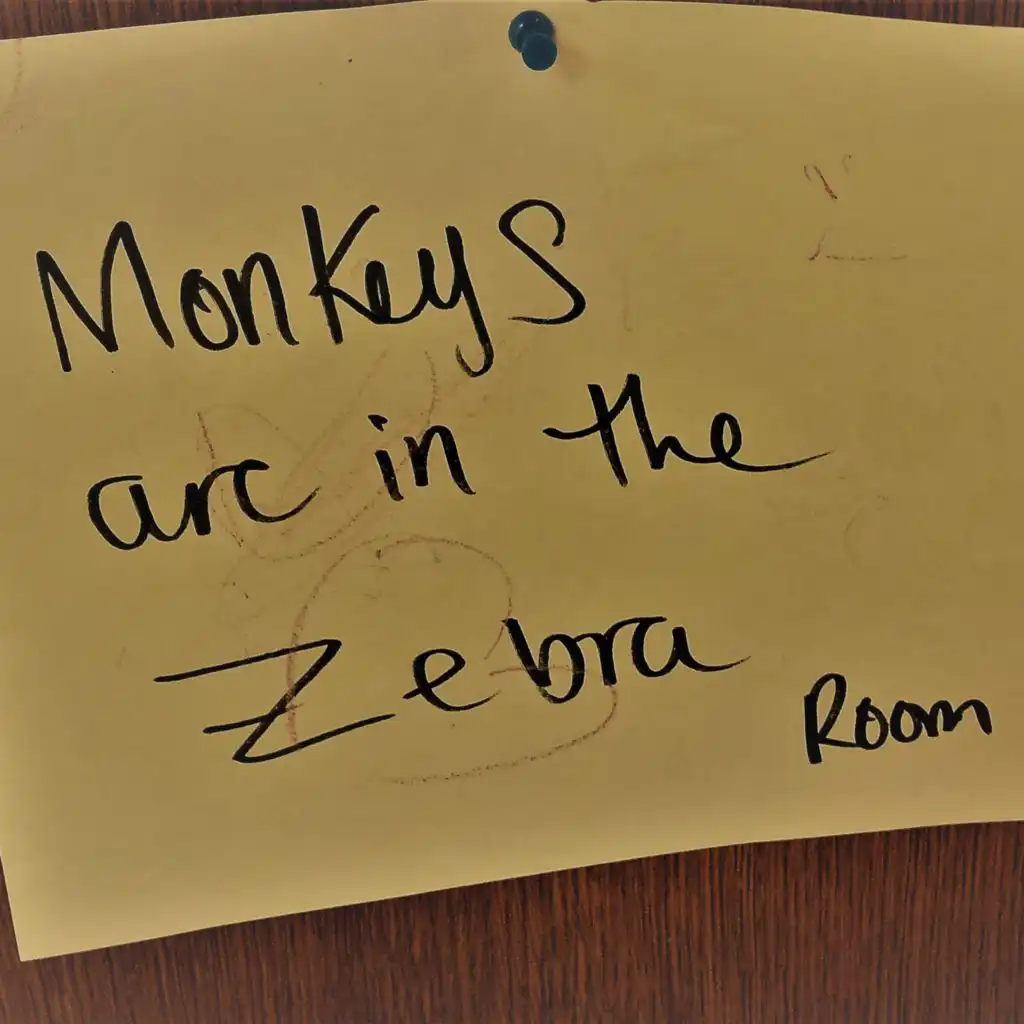 Monkeys
are in the
Zebra
Room